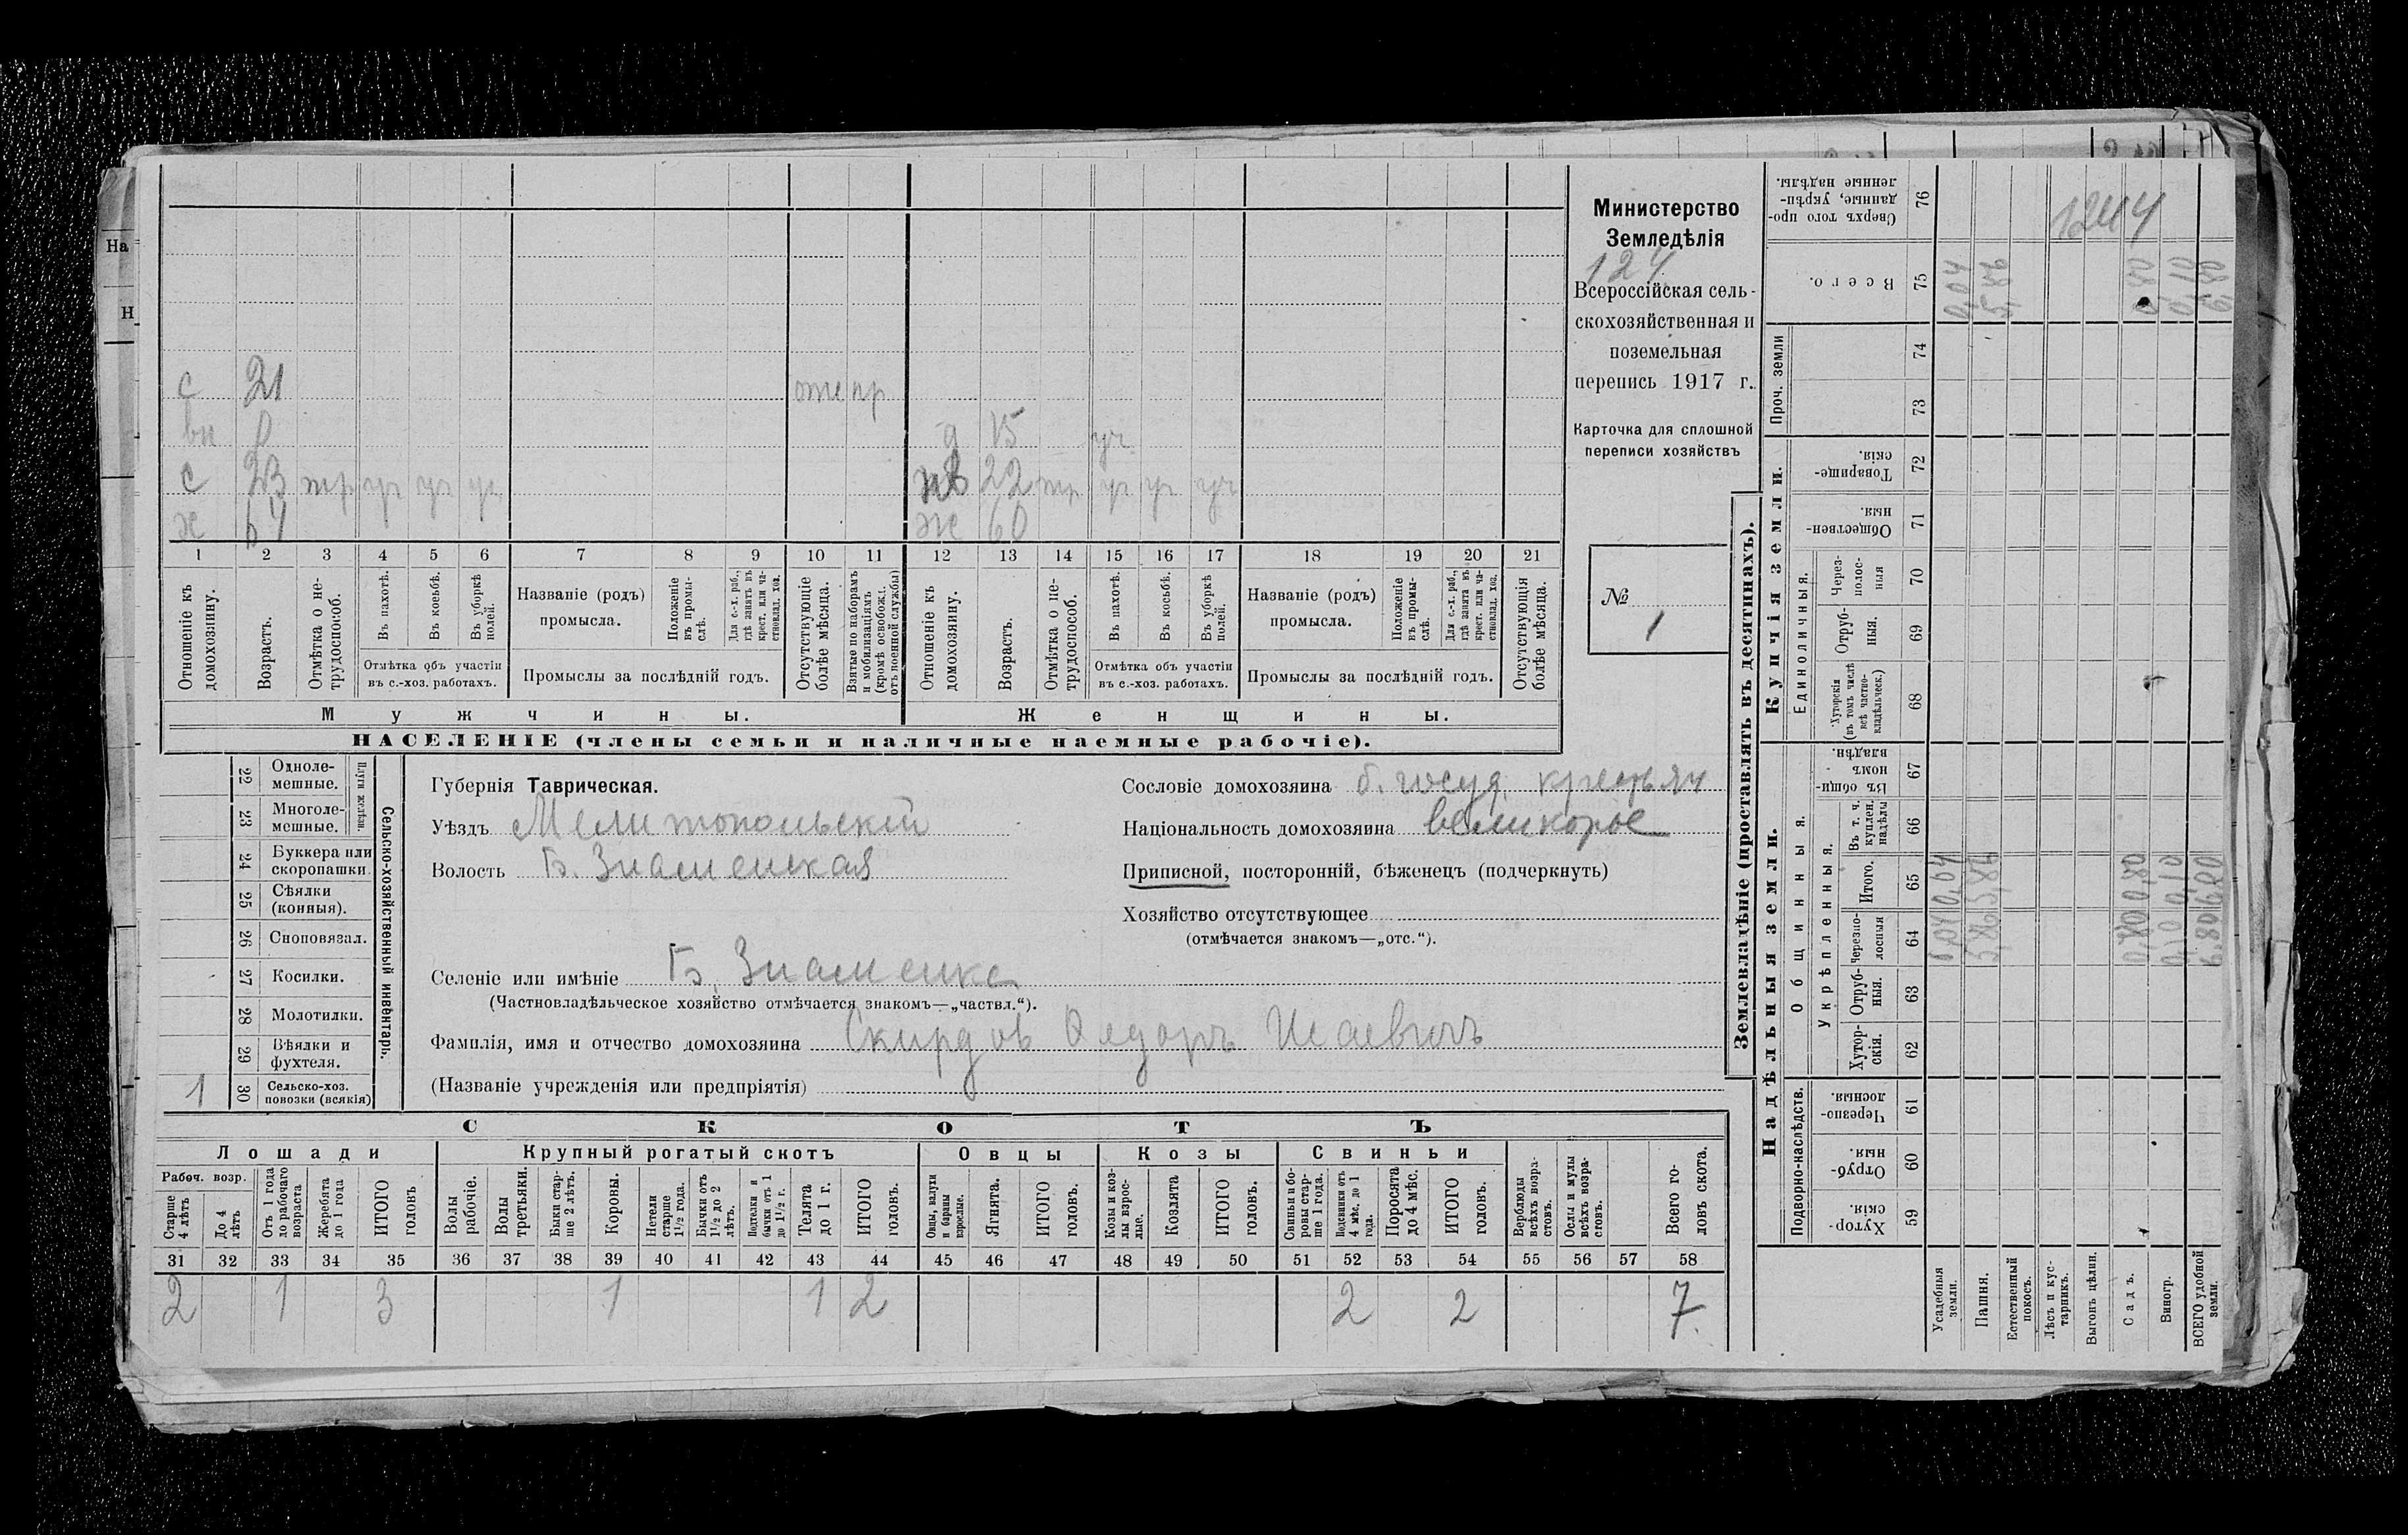 На
Н
с 21 отс пр
вн 0 д 15 уч
с 23 тр уч уч уч жв 22 тр уч уч уч
х 64 ж 60
1 2 3 4 5 6 7 8 9 10 11 12 13 14 15 16 17 18 19 20 21
Отношеніе къ домохозяину.
Возрастъ.
Отмѣтка о нетрудоспособ.
Въ пахотѣ.
Въ косьбѣ.
Въ уборкѣ полей.
Отмѣтка объ участіи
въ с.-хоз. работахъ.
Названіе (родъ)
промысла.
Положеніе въ промыслѣ.
Для с.-х. раб., гдѣ занатъ въ крест. или частновлад. хоз.
Промыслы за послѣдній годъ.
Отсутствующіе болѣе мѣсяца.
Взятые по наборамъ и мобилизаціямъ (кромѣ освобожд. отъ военной службы)
Отношеніе къ домохозяину.
Возрастъ.
Отмѣтка о нетрудоспособ.
Въ пахотѣ.
Въ косьбѣ.
Въ уборкѣ полей.
Отмѣтка объ участіи
въ с.-хоз. работахъ.
Названіе (родъ)
промысла.
Положеніе въ промыслѣ.
Для с.-х. раб., гдѣ занята въ крест. или частновлад. хоз.
Промыслы за послѣдній годъ.
Отсутствующія болѣе мѣсяца.
Мужчины. Женщины.
НАСЕЛЕНІЕ (члены семьи и наличные наемные рабочіе).
Министерство
Земледѣлія
124
Всероссійская сель-
скохозяйственная и
поземельная
перепись 1917 г.
Карточка для сплошной
переписи хозяйствъ
№
1
22 Одноле-
мешные.
23 Многоле-
мешные.
Плуги желѣзн.
24 Буккера или
скоропашки.
25 Сѣялки
(конныя).
26 Сноповязал.
27 Косилки.
28 Молотилки.
29 Вѣялки и
фухтеля.
1 30 Сельско-хоз.
повозки (всякія)
Сельско-хозяйственный инвентарь.
Губернія Таврическая.
Уѣздъ Мелитопольскій
Волость Б. Знаменская
Селеніе или имѣніе Б. Знаменка
(Частновладѣльческое хозяйство отмѣчается знакомъ—„частвл.“).
Фамилія, имя и отчество домохозяина Скирдов Ѳедоръ Исаевичъ
(Названіе учрежденія или предпріятія)
Сословіе домохозяина б. госуд. крестьян
Національность домохозяина великорос
Приписной, посторонній, бѣженецъ (подчеркнуть)
Хозяйство отсутствующее
(отмѣчается знакомъ—„отс.“).
СКОТЪ
Лошади Крупный рогатый скотъ Овцы Козы Свиньи
Рабоч. возр.
Старше 4 лѣтъ
До 4 лѣтъ
Отъ 1 года до рабочаго возраста
Жеребята до 1 года
ИТОГО головъ
Волы рабочіе.
Волы третьяки.
Быки старше 2 лѣтъ.
Коровы.
Нетели старше 1½ года.
Бычки отъ 1½ до 2 лѣтъ.
Подтелки и бычки отъ 1 до 1½ г.
Телята до 1 г.
ИТОГО головъ.
Овцы, валухи и бараны взрослые.
Ягнята.
ИТОГО головъ.
Козы и козлы взрослые.
Козлята
ИТОГО головъ.
Свиньи и боровы старше 1 года.
Подсвинки отъ 4 мѣс. до 1 года.
Поросята до 4 мѣс.
ИТОГО головъ.
Верблюды всѣхъ возрастовъ.
Ослы и мулы всѣхъ возрастовъ.
Всего головъ скота.
31 32 33 34 35 36 37 38 39 40 41 42 43 44 45 46 47 48 49 50 51 52 53 54 55 56 57 58
2 1 3 1 1 2 2 2 7
Землевладѣніе (проставлять въ десятинахъ).
Надѣльныя земли. Купчія земли.
Подворно-наслѣдств.
Общинныя.
Укрѣпленныя.
Единоличныя.
Проч. земли
Хуторскія. 59
Отрубныя. 60
Черезполосныя. 61
Хуторскія. 62
Отрубныя. 63
Черезполосныя 64
Итого. 65
Въ т. ч. куплен. надѣлы 66
Въ общинномъ владѣн. 67
Хуторскія (въ томъ числѣ всѣ частновладѣльческ.) 68
Отрубныя. 69
Черезполосныя 70
Общественныя. 71
Товарищескія. 72
73
74
Всего. 75
Сверхъ того проданные, укрѣпленные надѣлы. 76
1244
Усадебныя земли. 0,04 0,04 0,04
Пашня. 5,86 5,86 5,86
Естественный покосъ.
Лѣсъ и кустарникъ.
Выгонъ цѣлин.
Садъ. 0,80 0,80 0,80
Виногр. 0,10 0,10 0,10
ВСЕГО удобной земли. 6,80 6,80 6,80